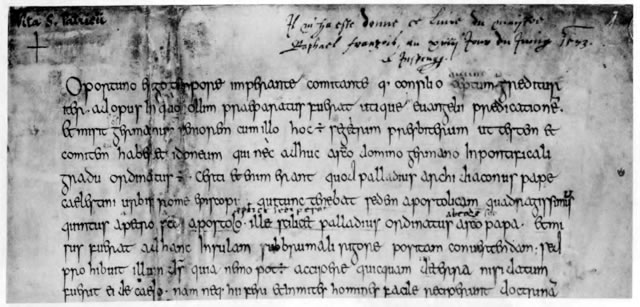 Vita S. Patricii
Il m'ha esté donné ce Livre du maystre
Raphael françois, au xviii Jour du Juing 1553.
Oportuno ergo tempore imperante comitante q; consilio aptum greditur
iter. ad opus in quod ollim praeparatus fuerat utique evangelii predicatione.
Et misit germanus seniorem cum illo hoc ÷ segetium presbiterium ut testem et
comitem haberet idoneum qui nec adhuc a sco domino germano in pontificali
gradu ordinatus ÷. Certi etenim erant quod palladius archidiaconus pape
caelestini urbis rome episcopi qui tunc tenebat sedem apostolicam quadragensimus
quintus a petro sci apostolo. ille scilicet palladius ordinatus a sco papa. et mi
sus fuerat ad hanc insulam sub brumali rigore positam convertendam. sed
prohibuit illum ds quia nemo potest accipere quicquam de terra nisi datum
fuerit ei de caelo. nam neq hii feri et inmites homines facile reciperent doctrinā